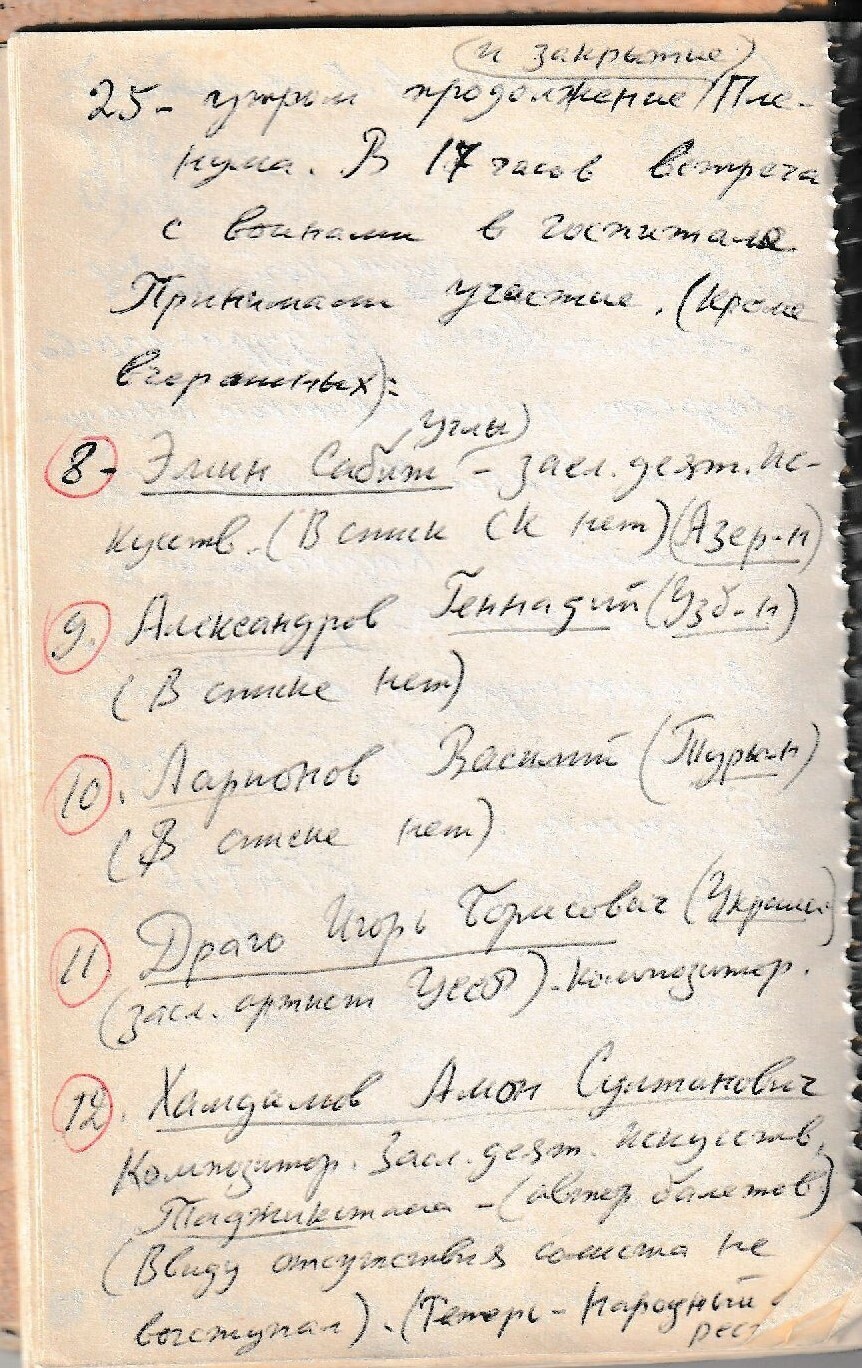 (и закрытие)
25- утром продолжение Пле-
нума. В 17 часов встреча
с воинами в госпитале
Принимали участие. (Кроме
вчерашних):
Углы)
8- Эмин Сабит - засл. деят. Ис-
кусств. (В списк СК нет) (Азер-н)
9. Александров Геннадий (Узб-н)
(В списке нет)
10. Ларионов Василий (Туркм-н)
(В списке нет)
11 Драго Игорь Борисович (Украина)
(засл. артист УССР). Композитор.
12. Хамдамов Амон Султанович
Композитор. Засл. деят. искусств,
Таджикистана - (автор балетов)
(Ввиду отсутствия солиста не
выступал). (Теперь - Народный